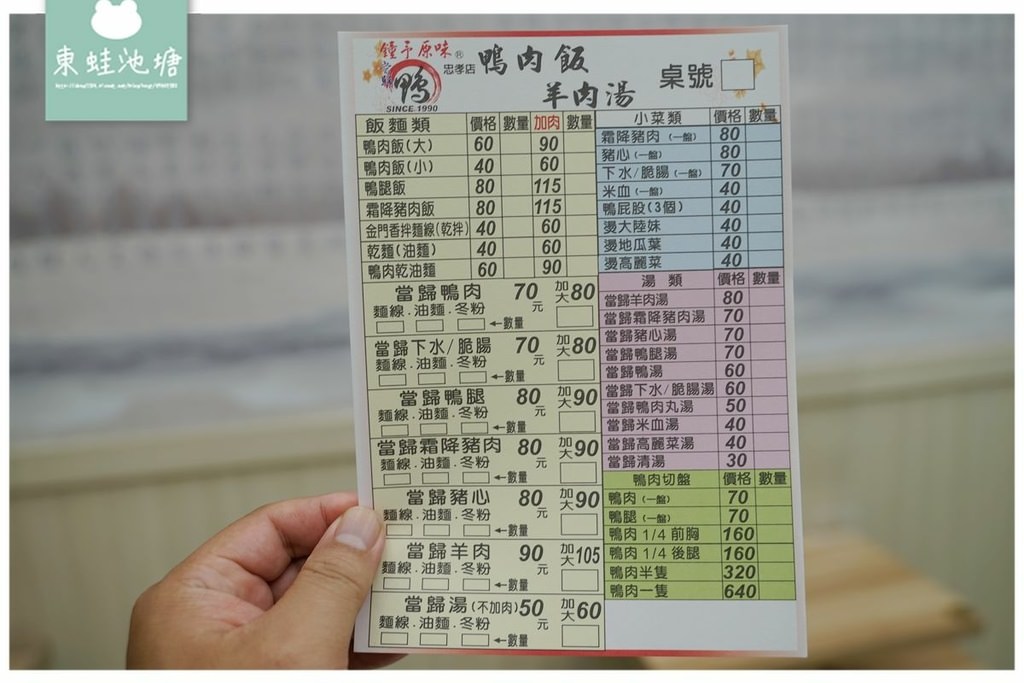 東蛙池塘
鍾予原味®
鴨
SINCE 1990
忠孝店
鴨肉飯
羊肉湯
桌號
飯麵類 價格 數量 加肉 數量
鴨肉飯(大) 60 90
鴨肉飯(小) 40 60
鴨腿飯 80 115
霜降豬肉飯 80 115
金門香拌麵線(乾拌) 40 60
乾麵(油麵) 40 60
鴨肉乾油麵 60 90
當歸鴨肉 70元 加大80
麵線.油麵.冬粉
←數量
當歸下水/脆腸 70元 加大80
麵線.油麵.冬粉
←數量
當歸鴨腿 80元 加大90
麵線.油麵.冬粉
←數量
當歸霜降豬肉 80元 加大90
麵線.油麵.冬粉
←數量
當歸豬心 80元 加大90
麵線.油麵.冬粉
←數量
當歸羊肉 90元 加大105
麵線.油麵.冬粉
←數量
當歸湯(不加肉) 50元 加大60
麵線.油麵.冬粉
←數量
小菜類 價格 數量
霜降豬肉(一盤) 80
豬心(一盤) 80
下水/脆腸(一盤) 70
米血(一盤) 40
鴨屁股(3個) 40
燙大陸妹 40
燙地瓜葉 40
燙高麗菜 40
湯類 價格 數量
當歸羊肉湯 80
當歸霜降豬肉湯 70
當歸豬心湯 70
當歸鴨腿湯 70
當歸鴨湯 60
當歸下水/脆腸湯 60
當歸鴨肉丸湯 50
當歸米血湯 40
當歸高麗菜湯 40
當歸清湯 30
鴨肉切盤 價格 數量
鴨肉(一盤) 70
鴨腿(一盤) 70
鴨肉1/4前胸 160
鴨肉1/4後腿 160
鴨肉半隻 320
鴨肉一隻 640